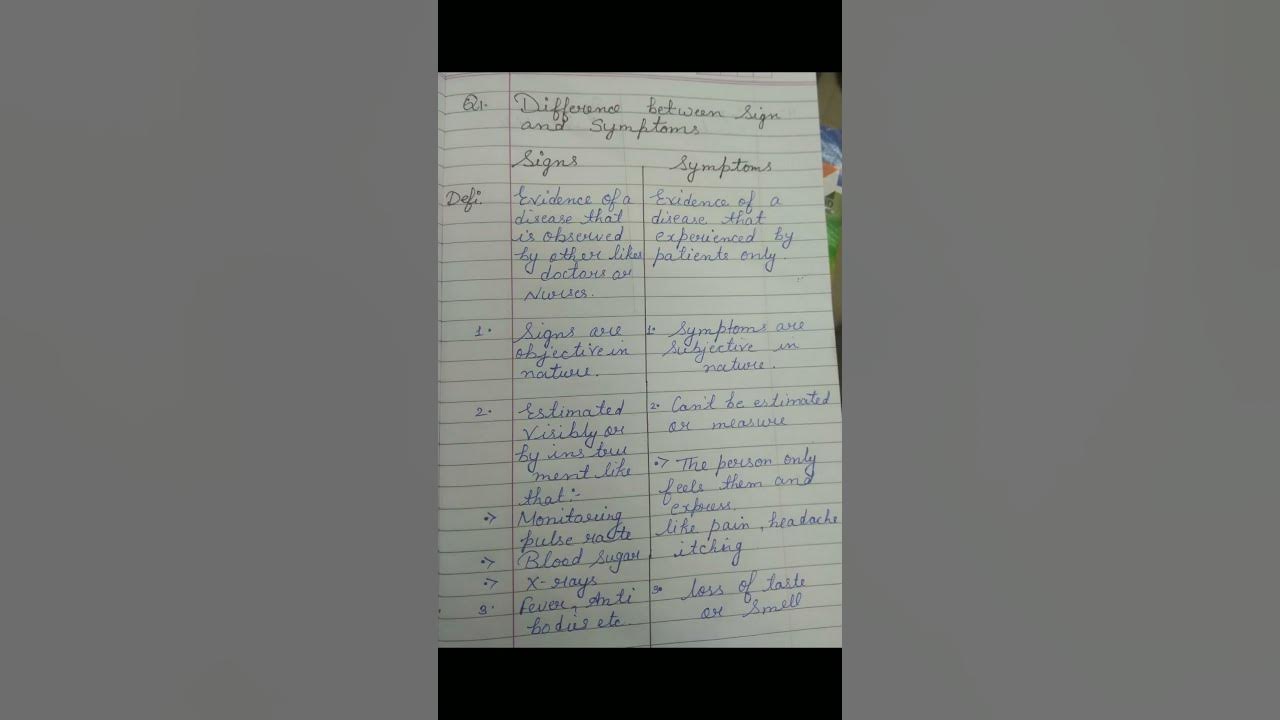 Q1. Difference between Sign
and Symptoms
Signs
Defi. Evidence of a
disease that
is observed
by other likes
doctors or
Nurses.
1. Signs are
objective in
nature.
2. Estimated
Visibly or
by instru
ment like
that :-
Monitoring
pulse raste
Blood sugar
X-rays
3. Fever, Anti
bodies etc.
Symptoms
Evidence of a
disease that
experienced by
patients only.
1. Symptoms are
subjective in
nature.
2. Can't be estimated
or measure
The person only
feels them and
express.
like pain, headache
itching
3. loss of taste
or smell